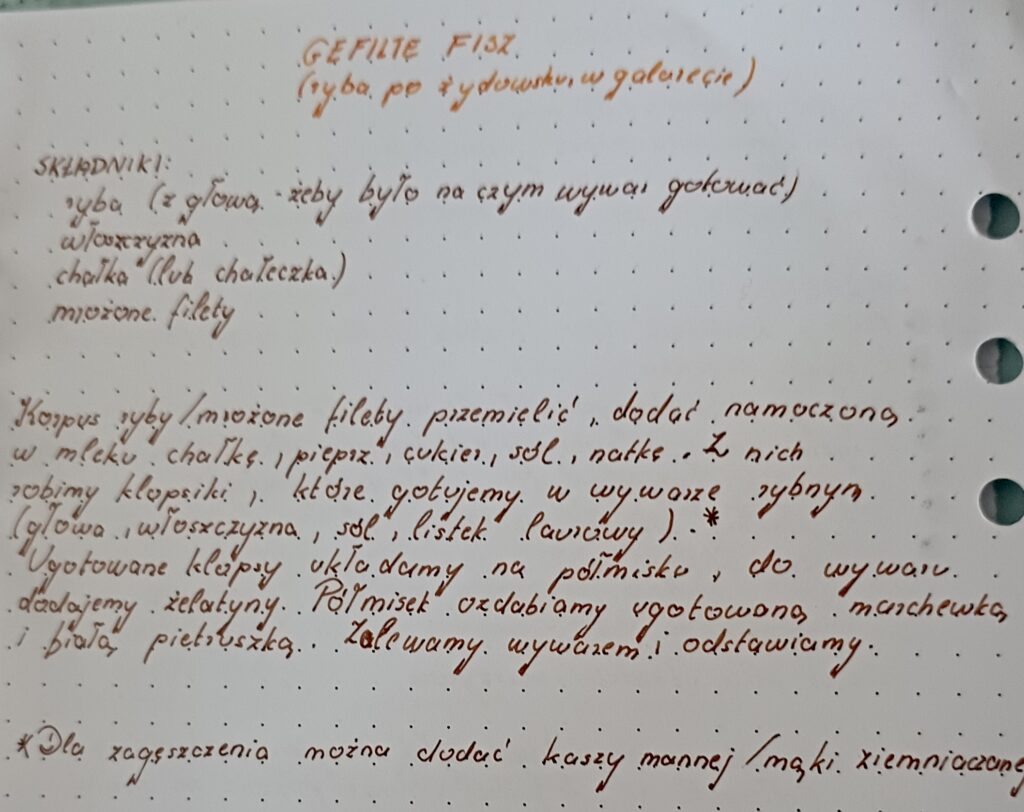 GEFILTE FISZ
(ryba po żydowsku, w galarecie)
SKŁADNIKI:
ryba (z głową - żeby było na czym wywar gotować)
włoszczyzna
chałka (lub chałeczka)
mrożone filety
Korpus ryby/mrożone filety przemielić, dodać namoczoną
w mleku chałkę, pieprz, cukier, sól, natkę. Z nich
robimy klopsiki, które gotujemy w wywarze rybnym
(głowa, włoszczyzna, sól, listek laurowy).*
Ugotowane klopsy układamy na półmisku, do wywaru
dodajemy żelatyny. Półmisek ozdabiamy ugotowaną marchewką
i białą pietruszką. Zalewamy wywarem i odstawiamy.
*Dla zagęszczenia można dodać kaszy mannej/mąki ziemniaczanej